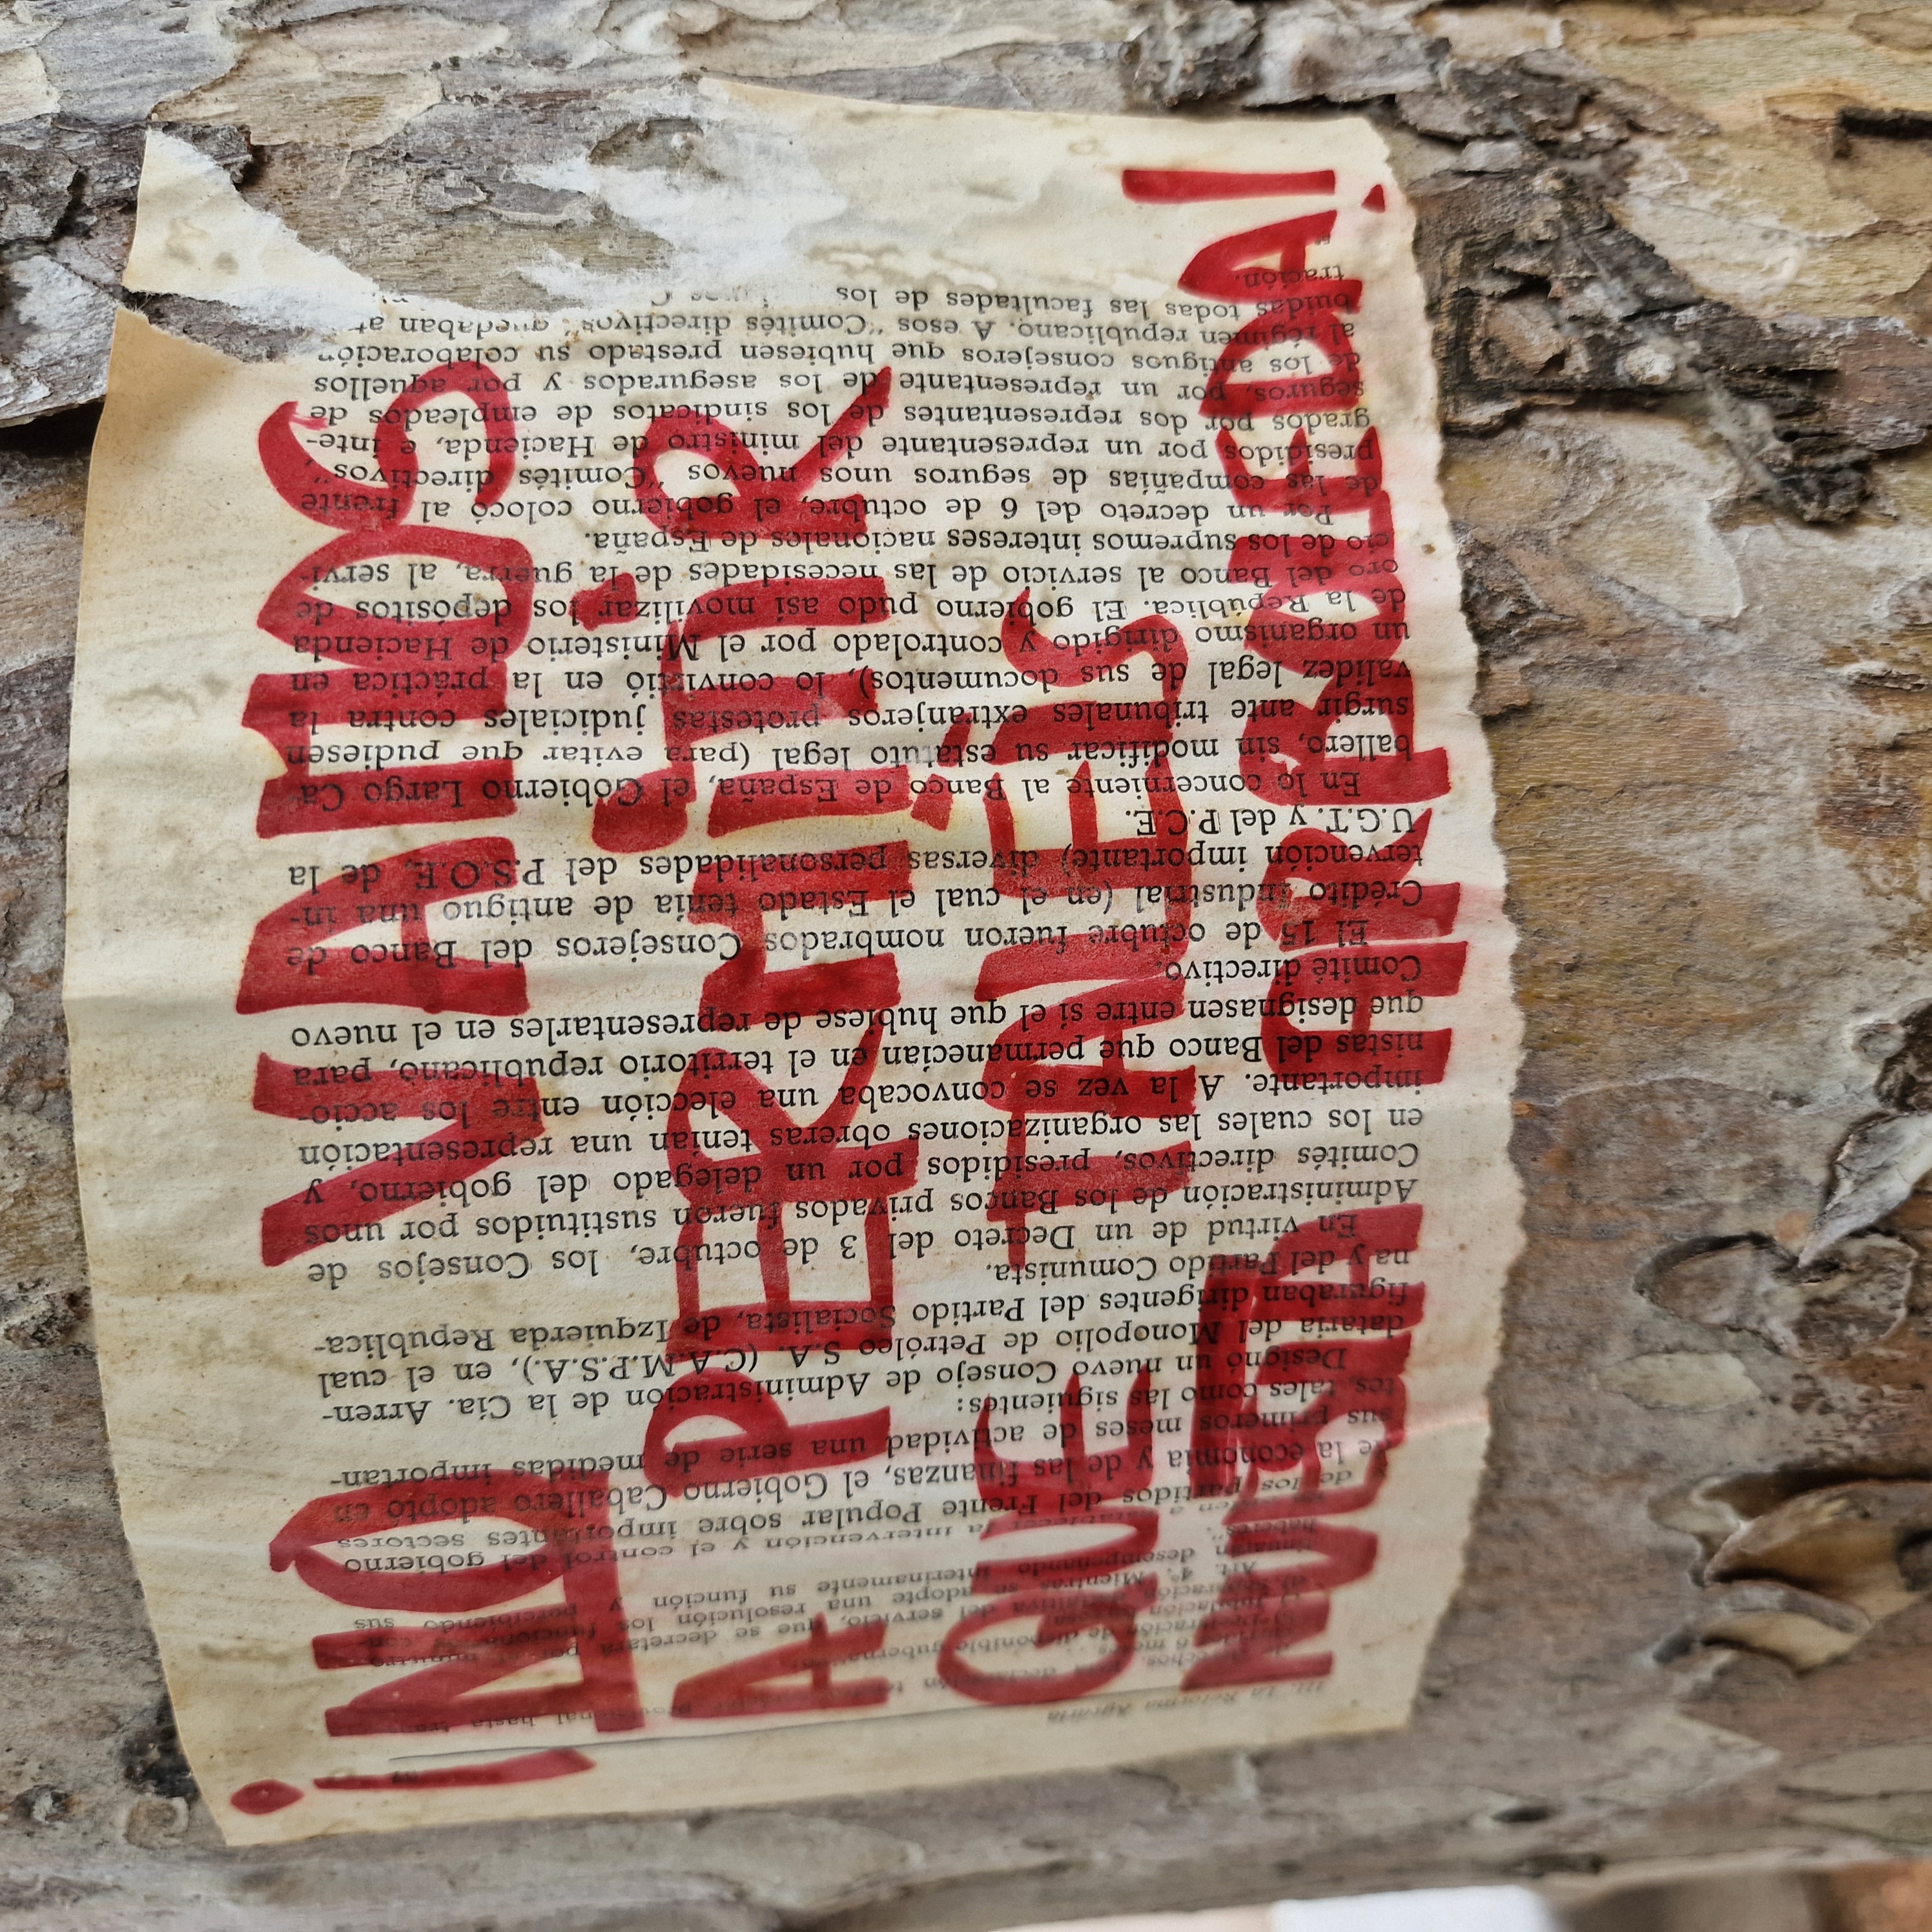 ¡NO VAMOS
A PERMITIR
QUE TALÉIS
NUESTRA
ARBOLEDA!
III. La Reforma Agraria
Art. 4º. Mientras se adopte una resolución
desempeñando interinamente su función y percibiendo sus
haberes".
la intervención y el control del gobierno
de los partidos del Frente Popular sobre importantes sectores
de la economía y de las finanzas, el Gobierno Caballero adoptó en
sus primeros meses de actividad una serie de medidas importan-
tes, tales como las siguientes:
Designó un nuevo Consejo de Administración de la Cía. Arren-
dataria del Monopolio de Petróleo S.A. (C.A.M.P.S.A.), en el cual
figuraban dirigentes del Partido Socialista, de Izquierda Republica-
na y del Partido Comunista.
En virtud de un Decreto del 3 de octubre, los Consejos de
Administración de los Bancos privados fueron sustituidos por unos
Comités directivos, presididos por un delegado del gobierno, y
en los cuales las organizaciones obreras tenían una representación
importante. A la vez se convocaba una elección entre los accio-
nistas del Banco que permanecían en el territorio republicano, para
que designasen entre sí el que hubiese de representarles en el nuevo
Comité directivo.
El 15 de octubre fueron nombrados Consejeros del Banco de
Crédito Industrial (en el cual el Estado tenía de antiguo una in-
tervención importante) diversas personalidades del P.S.O.E. de la
U.G.T. y del P.C.E.
En lo concerniente al Banco de España, el Gobierno Largo Ca-
ballero, sin modificar su estatuto legal (para evitar que pudiesen
surgir ante tribunales extranjeros protestas judiciales contra la
validez legal de sus documentos), lo convirtió en la práctica en
un organismo dirigido y controlado por el Ministerio de Hacienda
de la República. El gobierno pudo así movilizar los depósitos de
oro del Banco al servicio de las necesidades de la guerra, al servi-
cio de los supremos intereses nacionales de España.
Por un decreto del 6 de octubre, el gobierno colocó al frente
de las compañías de seguros unos nuevos "Comités directivos",
presididos por un representante del ministro de Hacienda, e inte-
grados por dos representantes de los sindicatos de empleados de
seguros, por un representante de los asegurados y por aquellos
de los antiguos consejeros que hubiesen prestado su colaboración
al régimen republicano. A esos "Comités directivos" quedaban at
buidas todas las facultades de los
tración.